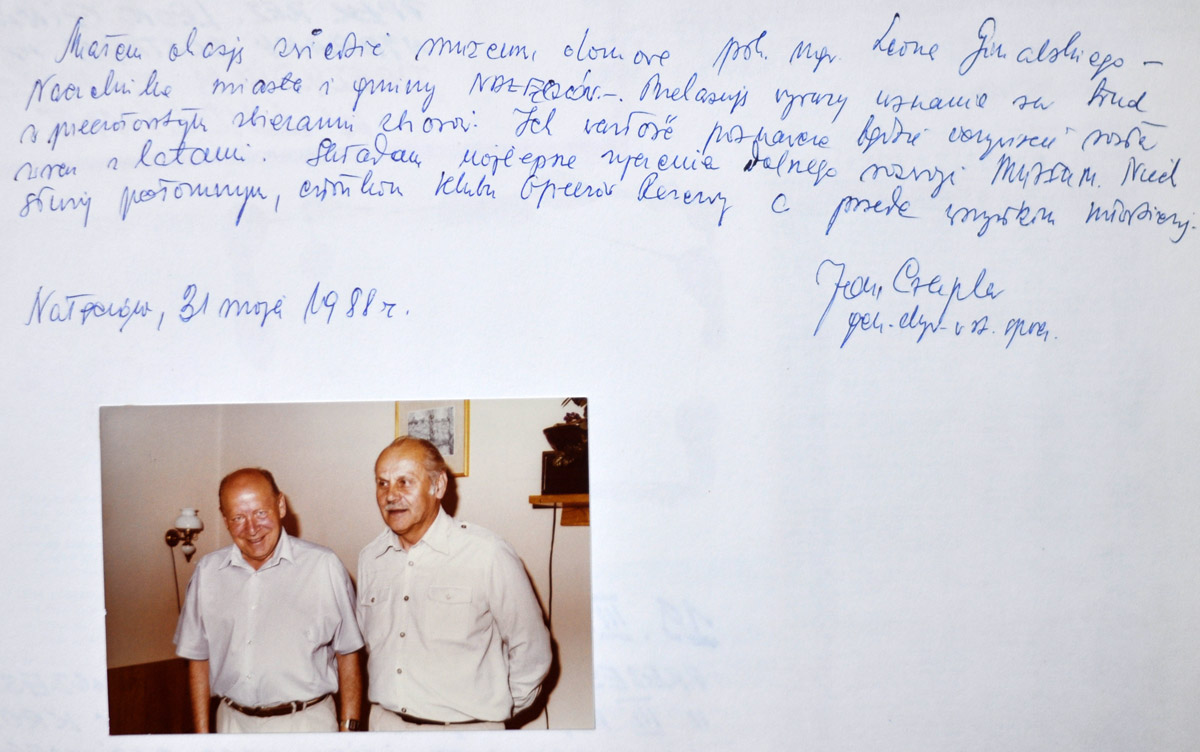 Miałem okazję zwiedzić muzeum domowe płk. mgr. Leona Gmalskiego –
Naczelnika miasta i gminy NAŁĘCZÓW –. Przekazuję wyrazy uznania za trud
w pieczołowitym zbieraniu zbiorów. Ich wartość poznawcza będzie oczywiście rosła
wraz z latami. Składam najlepsze życzenia dalnego rozwoju Muzeum. Niech
służy potomnym, członkom Klubu Oficerów Rezerwy a przede wszystkim młodzieży.
Nałęczów, 31 maja 1988 r.
Jan Czapla
gen. dyw. w st. spocz.